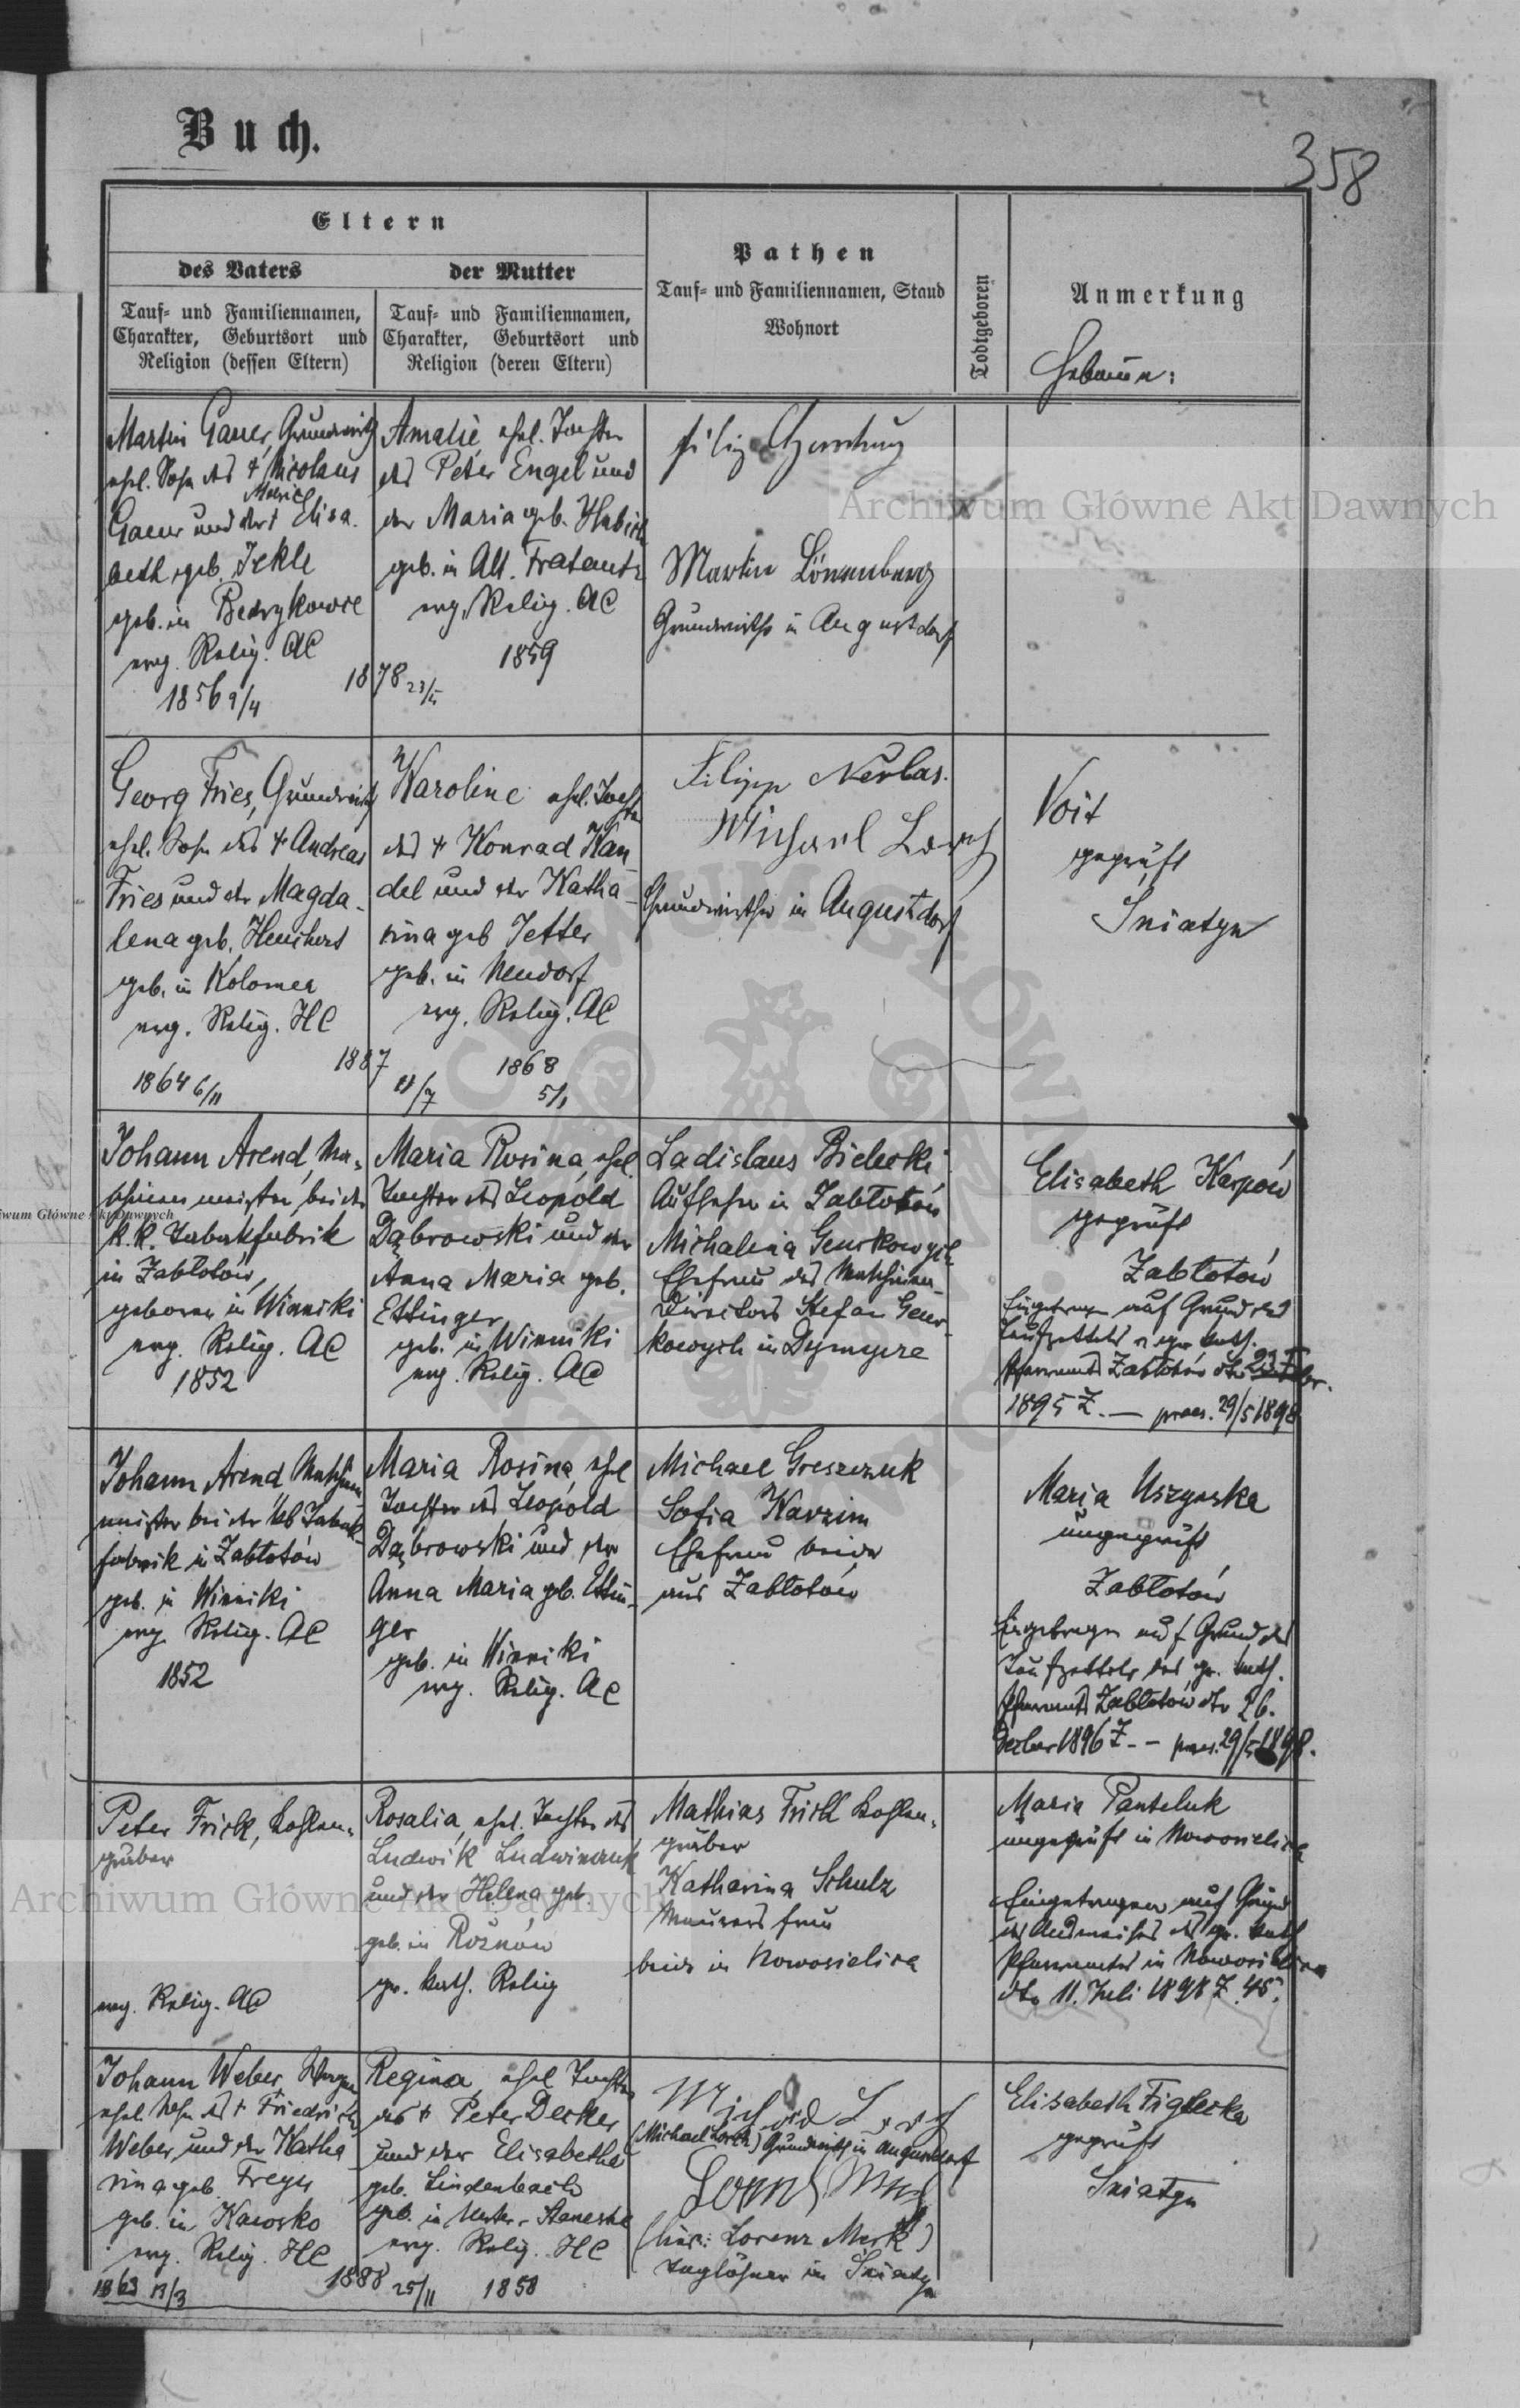 Buch.
358
Eltern
des Vaters
der Mutter
Tauf- und Familiennamen,
Charakter, Geburtsort und
Religion (dessen Eltern)
Tauf- und Familiennamen,
Charakter, Geburtsort und
Religion (deren Eltern)
Pathen
Tauf- und Familiennamen, Stand
Wohnort
Todtgeboren
Anmerkung
Martin Gauer, Grundwirth
ehel. Sohn des + Nicolaus
Gauer und der + Elisa-
beth geb. Jekle
geb. in
evg. Relig. AC
1856 9/4
1878 23/
Amalie ehel. Tochter
des Peter Engel und
der Maria geb.
geb. in Alt. Fratautz
evg. Relig. AC
1859
Martin Lönenberg
Grundwirthe in Augustdorf
Georg Fries, Grundwirth
ehel. Sohn des + Andreas
Fries und der Magda-
lena geb.
geb. in Kolomea
evg. Relig. HC
1864 6/11
1887
11/7
Karoline ehel. Tochter
des + Konrad Kan-
del und der Katha-
rina geb Jetter
geb. in Neudorf
evg. Relig. AC
1868
5/1
Filipp Nerbas.
Michael Lorch
Grundwirthe in Augustdorf
Voit
geprüft
Sniatyn
Johann Arend, Ma-
schinenmeister bei der
k.k. Tabakfabrik
in Zabłotów,
geboren in Winniki
evg. Relig. AC
1852
Maria Rosina, ehel.
Tochter des Leopold
Dąbrowski und der
Anna Maria geb.
Ettinger
geb. in Winniki
evg. Relig. AC
Ladislaus Bielecki
Aufseher in Zabłotów
Michalina
Ehefrau des Maschinen-
Directors Stefan
in
Elisabeth Karpów
geprüft
Zabłotów
Eingetragen auf Grund des
Taufzettels
Pfarramts Zabłotów dto
1895 Z. — praes. 29/5 1898
Johann Arend, Maschinen
meister bei der kk Tabak-
fabrik in Zabłotów
geb. in Winniki
evg. Relig. AC
1852
Maria Rosina, ehel
Tochter des Leopold
Dąbrowski und der
Anna Maria geb. Ettin-
ger
geb. in Winniki
evg. Relig. AC
Michael Greszczuk
Sofia
Ehefrau beide
aus Zabłotów
Maria
ungeprüft
Zabłotów
Eingetragen auf Grund des
Taufzettels des gr. kath.
Pfarramts Zabłotów dto 26.
1896 Z. — praes. 29/5 1898.
Peter Frick, Kohlen-
gräber
evg. Relig. AC
Rosalia, ehel. Tochter des
Ludwik
und der Helena geb.
geb. in Rożnów
gr. kath. Relig
Mathias Frick Kohlen-
gräber
Katharina Schulz
Maurers frau
beide in Nowosielica
Maria Panteluk
ungeprüft in Nowosielica
Eingetragen auf Grund
des Ausweises des gr. kath
Pfarramtes in Nowosielica
dto 11. Juli 1898 Z. 45.
Johann Weber,
ehel. Sohn des + Friedrich
Weber und der Katha-
rina geb.
geb. in Kawsko
evg. Relig. HC
1863 13/3
1888 25/11
Regina, ehel Tochter
des + Peter Decker
und der Elisabetha
geb. Lindenbach
geb. in Unter-
evg. Relig. HC
1858
Michael Lorch
(Michael Lorch) Grundwirth in Augustdorf
(hier: Lorenz Merk)
Taglöhner in Sniatyn
Elisabeth
geprüft
Sniatyn
Archiwum Główne Akt Dawnych
Archiwum Główne Akt Dawnych